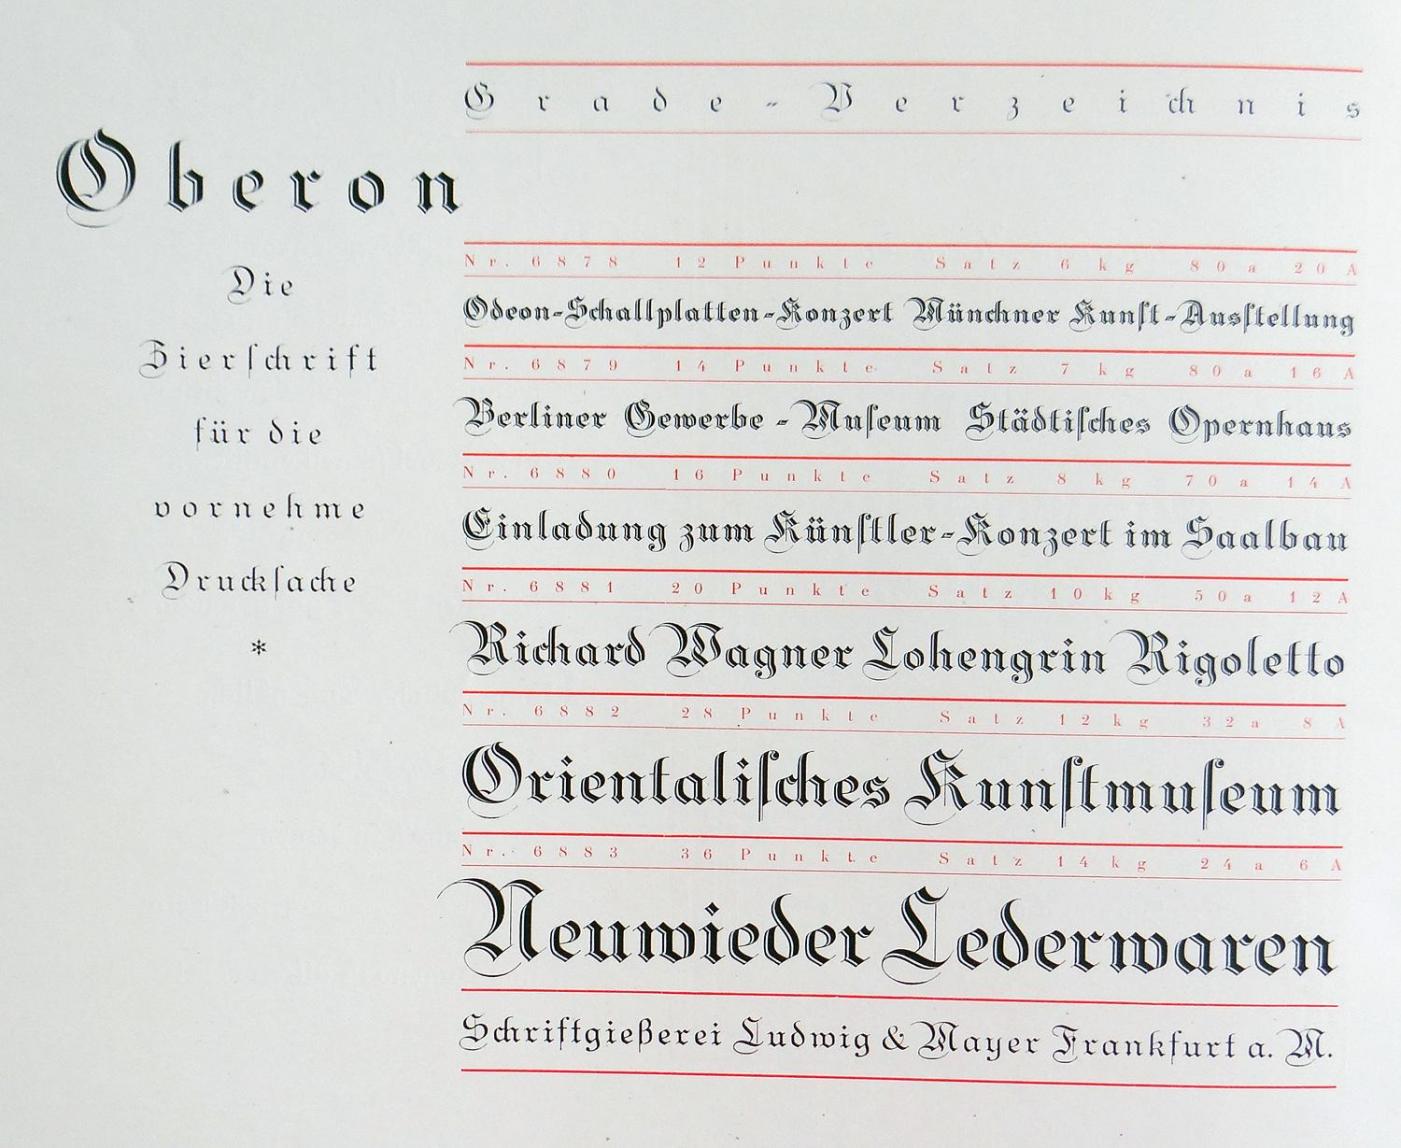 Grade-Verzeichnis
Oberon
Die
Zierſchrift
für die
vornehme
Druckſache
*
Nr. 6878 12 Punkte Satz 6 kg 80 a 20 A
Odeon-Schallplatten-Konzert Münchner Kunſt-Ausſtellung
Nr. 6879 14 Punkte Satz 7 kg 80 a 16 A
Berliner Gewerbe-Muſeum Städtiſches Opernhaus
Nr. 6880 16 Punkte Satz 8 kg 70 a 14 A
Einladung zum Künſtler-Konzert im Saalbau
Nr. 6881 20 Punkte Satz 10 kg 50 a 12 A
Richard Wagner Lohengrin Rigoletto
Nr. 6882 28 Punkte Satz 12 kg 32 a 8 A
Orientaliſches Kunſtmuſeum
Nr. 6883 36 Punkte Satz 14 kg 24 a 6 A
Neuwieder Lederwaren
Schriftgießerei Ludwig & Mayer Frankfurt a. M.